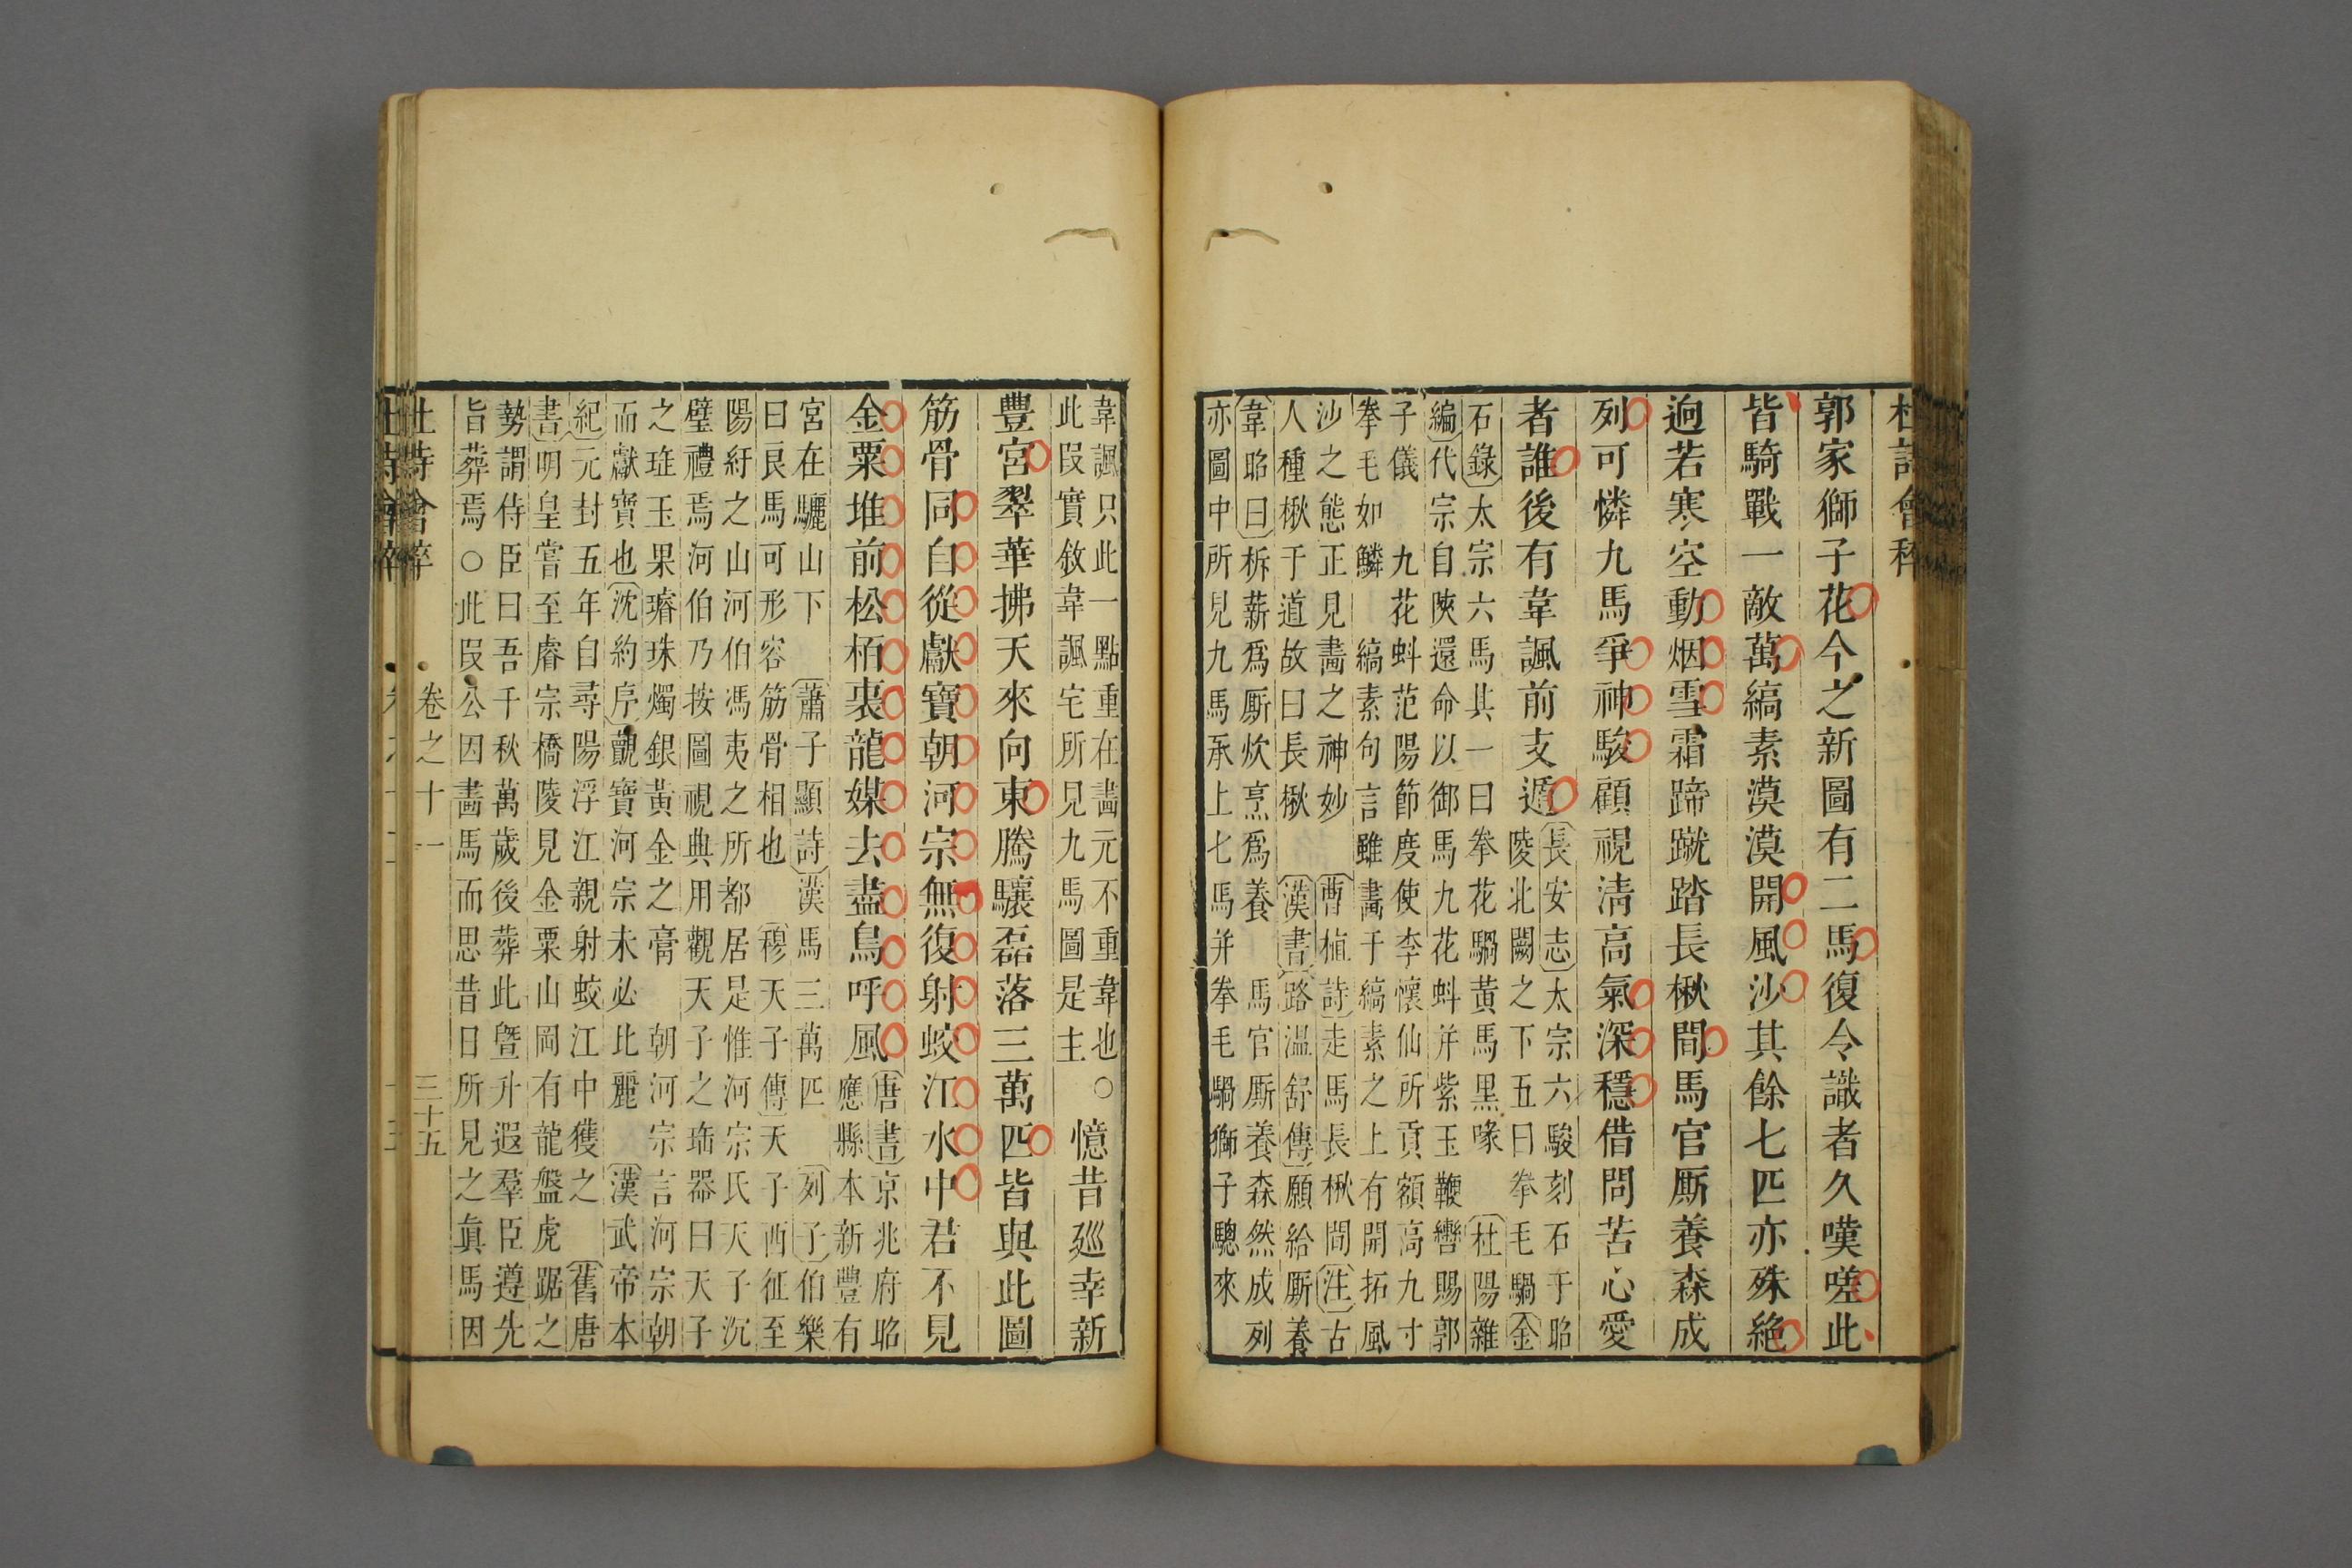 杜詩會稡
郭家獅子花今之新圖有二馬復令識者久嘆嗟此
皆騎戰一敵萬縞素漠漠開風沙其餘七匹亦殊絶
逈若寒空動烟雪霜蹄蹴踏長楸間馬官厮養森成
列可憐九馬爭神駿顧視淸高氣深穩借問苦心愛
者誰後有韋諷前支遁
長安志太宗六駿刻石于昭
陵北闕之下五曰拳毛騧金
石錄太宗六馬其一曰拳花騧黃馬黑喙 杜陽雜
編代宗自陝還命以御馬九花虯并紫玉鞭轡賜郭
子儀 九花虯范陽節度使李懷仙所貢額高九寸
拳毛如鱗 縞素句言雖畫于縞素之上有開拓風
沙之態正見畫之神妙 曹植詩走馬長楸間注古
人種楸于道故曰長楸 漢書路溫舒傳願給厮養
韋昭曰析薪爲厮炊烹爲養 馬官厮養森然成列
亦圖中所見九馬承上七馬并拳毛騧獅子驄來
韋諷只此一點重在畫元不重韋也○
此叚實敘韋諷宅所見九馬圖是主
憶昔廵幸新
豐宮翠華拂天來向東騰驤磊落三萬匹皆與此圖
筋骨同自從獻寶朝河宗無復射蛟江水中君不見
金粟堆前松栢裏龍媒去盡鳥呼風
唐書京兆府昭
應縣本新豐有
宮在驪山下 蕭子顯詩漢馬三萬匹 列子伯樂
曰良馬可形容筋骨相也 穆天子傳天子西征至
陽紆之山河伯馮夷之所都居是惟河宗氏天子沉
璧禮焉河伯乃按圖視典用觀天子之珤器曰天子
之珤玉果璿珠燭銀黃金之膏 朝河宗言河宗朝
而獻寶也沈約序觀寶河宗未必比麗 漢武帝本
紀元封五年自尋陽浮江親射蛟江中獲之 舊唐
書明皇嘗至睿宗橋陵見金粟山岡有龍盤虎踞之
勢謂侍臣曰吾千秋萬歲後葬此曁升遐羣臣遵先
旨葬焉○此叚公因畫馬而思昔日所見之眞馬因
杜詩會稡 卷之十一 三十五